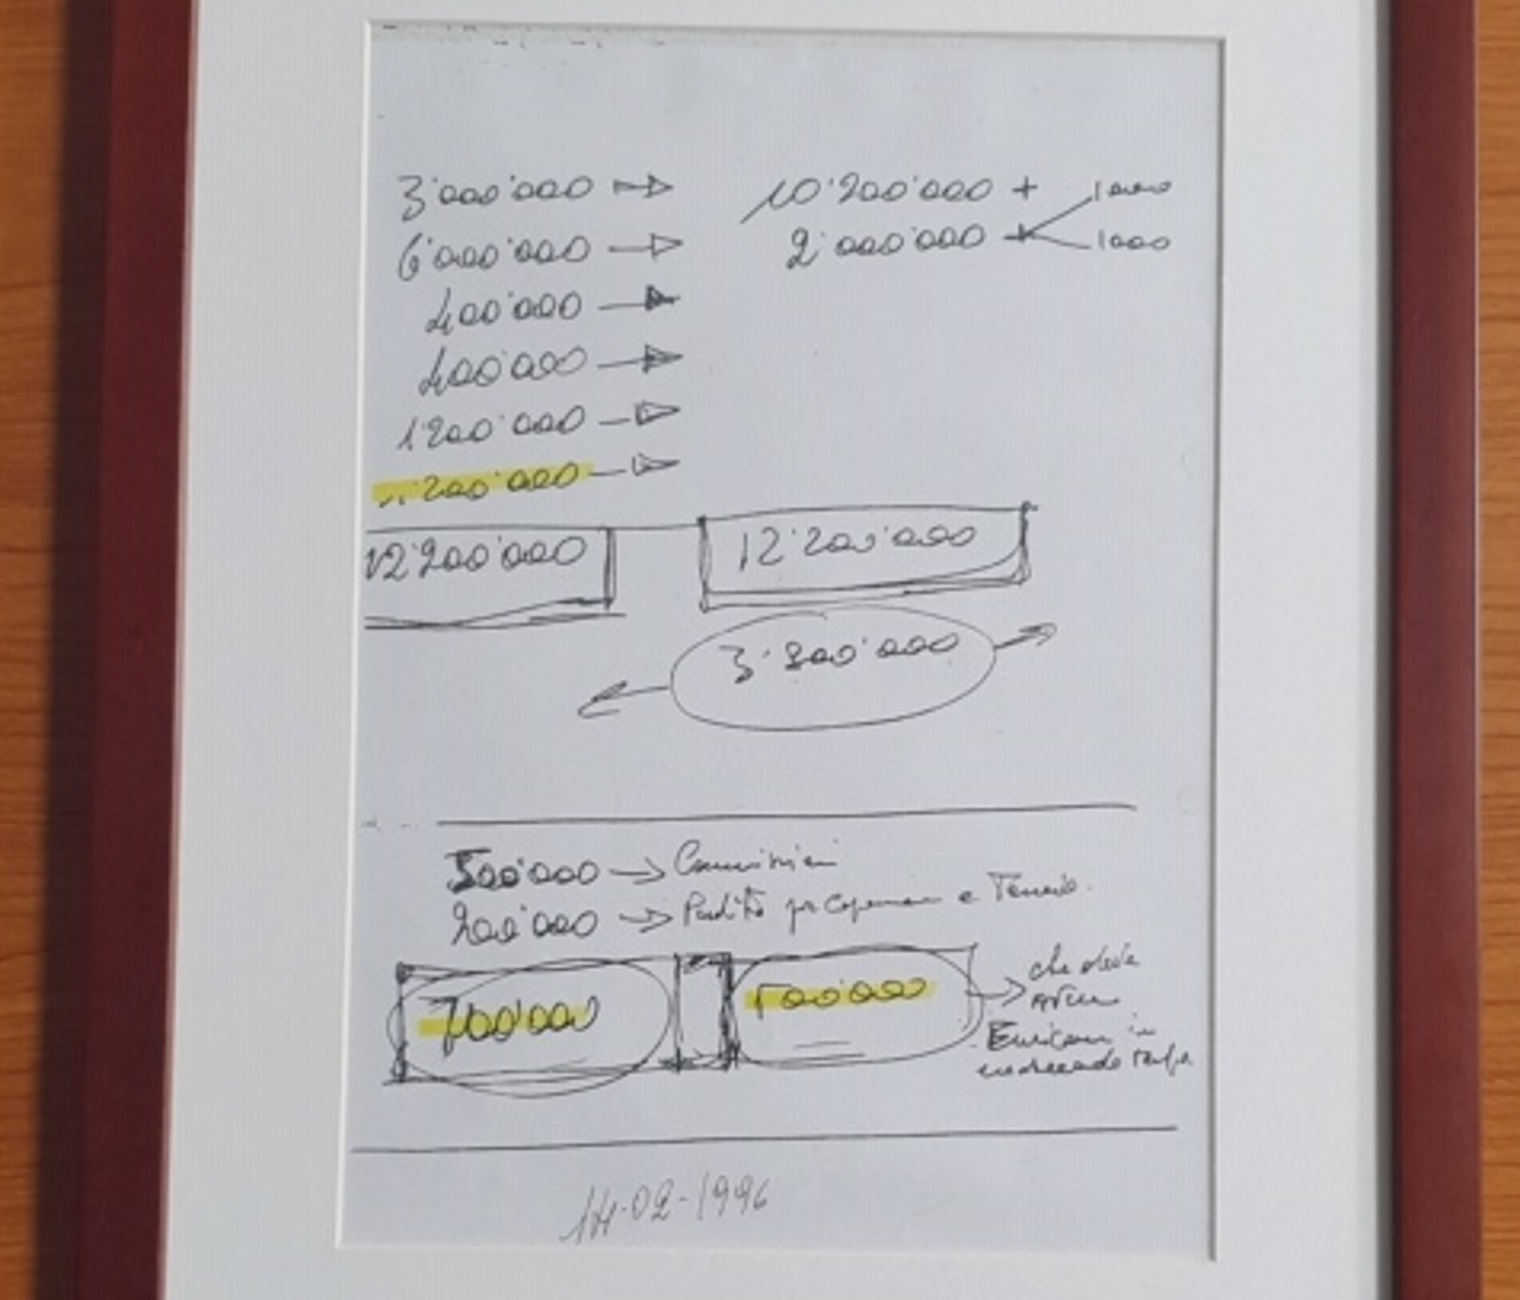 3'000'000 → 10'200'000 + 1000
6'000'000 → 2'000'000 + 1000
400'000 →
400'000 →
1'200'000 →
1'200'000 →
12'200'000 12'200'000
3'200'000
500'000 → Commissioni
200'000 → e
700'000 500'000 → che deve
in
14-02-1996